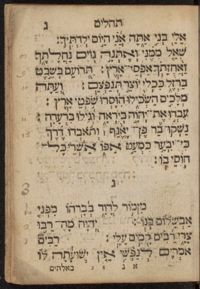 תהלים
ג
אלי בני אתה אני היום ילדתיך:
שאל ממני ואתנה גוים נחלתך
ואחזתך אפסי־ארץ: תרועם בשבט
ברזל ככלי יוצר תנפצם: ועתה
מלכים השכילו הוסרו שפטי ארץ:
עבדו את־יהוה ביראה וגילו ברעדה:
נשקו־בר פן־יאנף ותאבדו דרך
כי־יבער כמעט אפו אשרי כל־
חוסי בו:
ג
מזמור לדוד בברחו מפני
אבשלום בנו: יהוה מה־רבו
צרי רבים קמים עלי: רבים
אמרים לנפשי אין ישועתה לו
באלהים